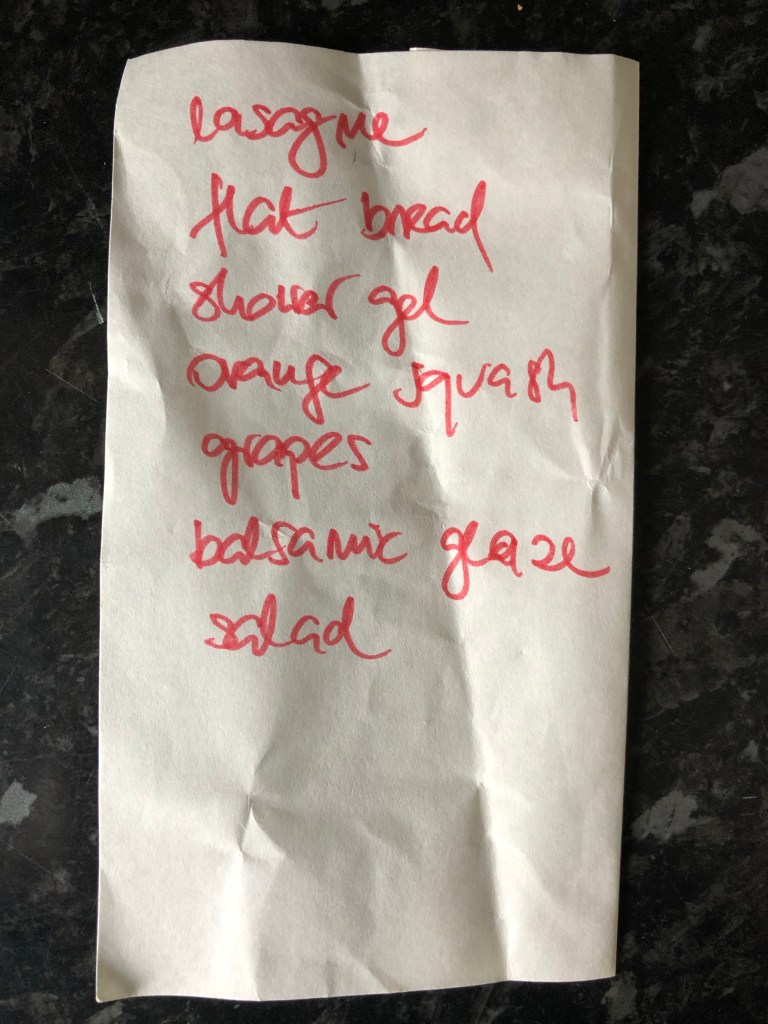 lasagne
flat bread
shower gel
orange squash
grapes
balsamic glaze
salad